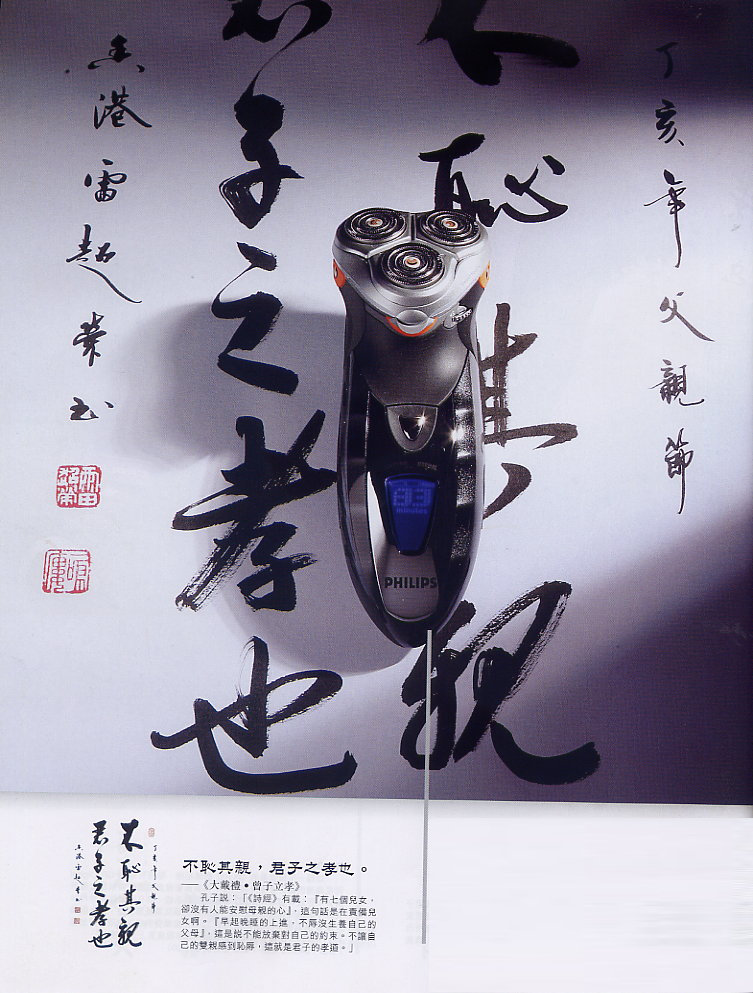 丁亥年父親節
不恥其親
君子之孝也
香港雷超榮书
minutes
PHILIPS
丁亥年父親節
不恥其親
君子之孝也
香港雷超榮书
不恥其親，君子之孝也。
——《大戴禮•曾子立孝》
孔子説：「《詩經》有載：『有七個兒女，
卻沒有人能安慰母親的心』，這句話是在責備兒
女啊。『早起晚睡的上進，不辱沒生養自己的
父母』，這是説不能放棄對自己的約束。不讓自
己的雙親感到恥辱，這就是君子的孝道。」